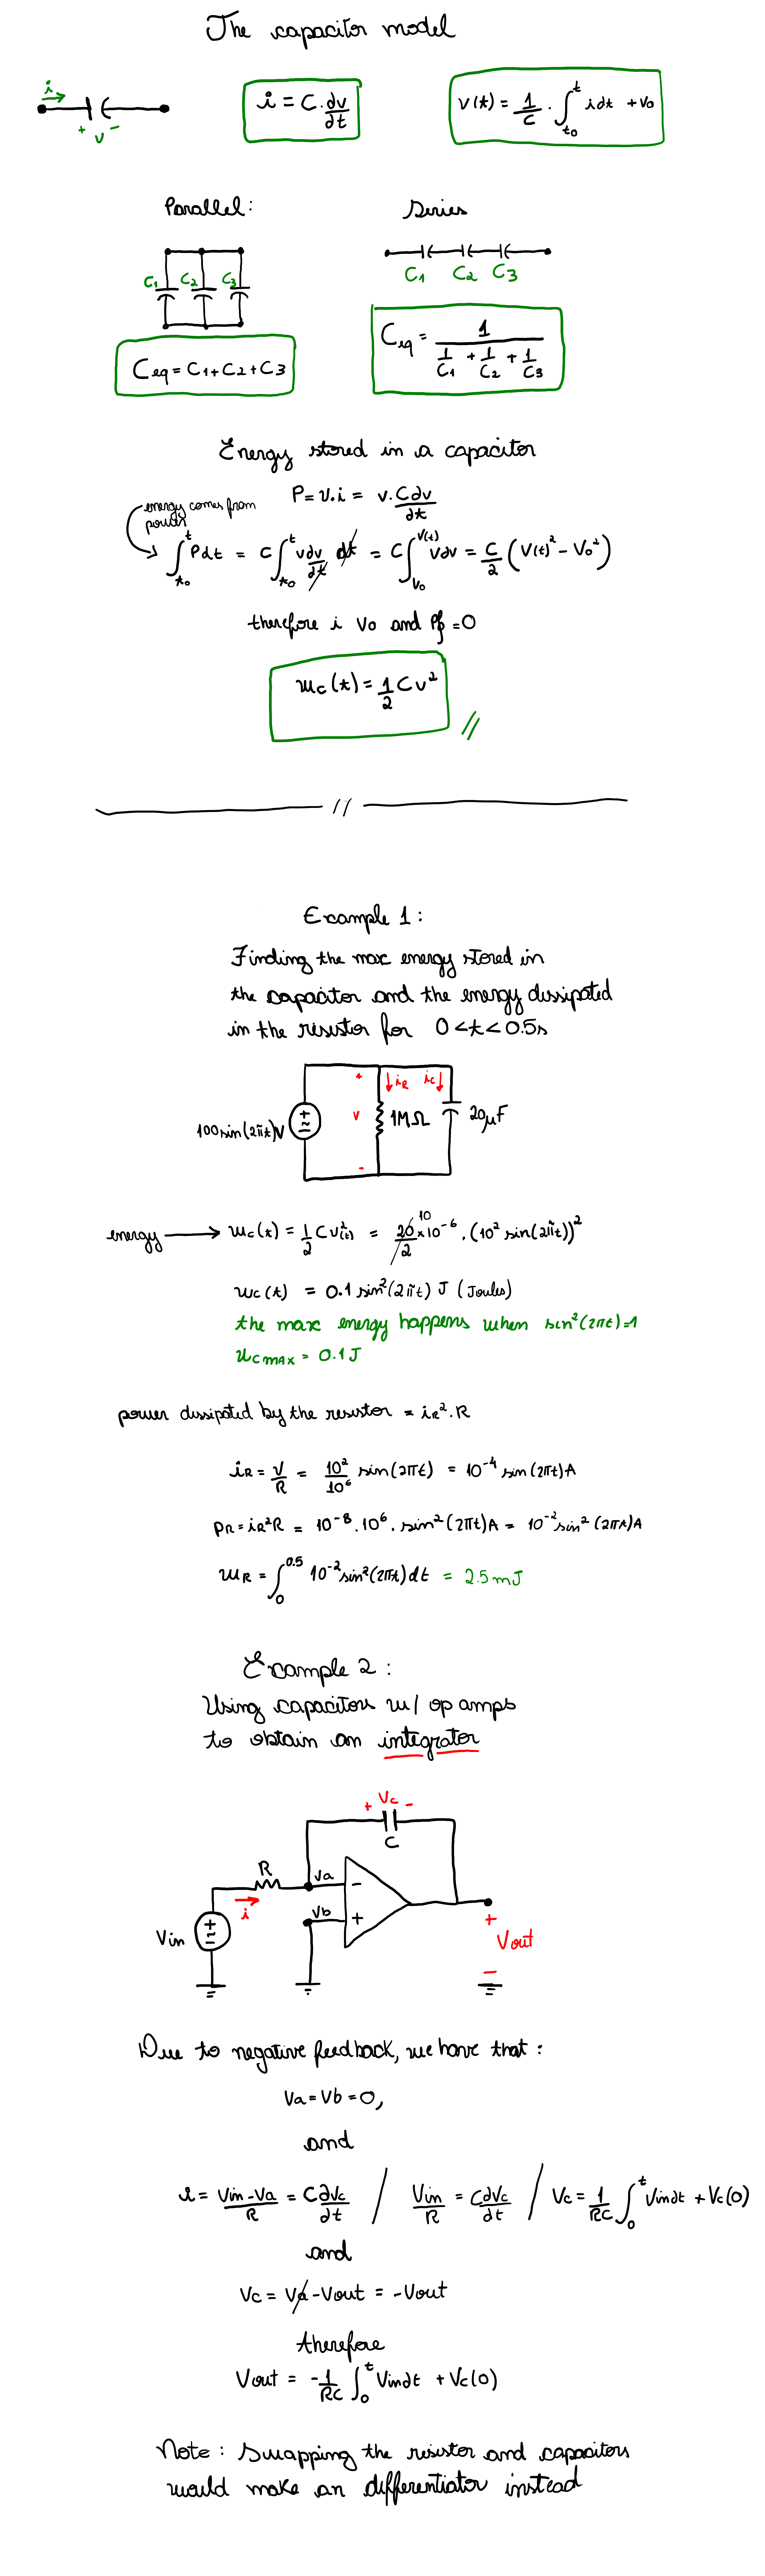 The capacitor model
i
+ v -
i = C.dv/dt
v(t) = 1/C . ∫_{t0}^{t} i dt + v0
Parallel:
Series
C1 C2 C3
C1 C2 C3
Ceq = C1+C2+C3
Ceq = 1/(1/C1 + 1/C2 + 1/C3)
Energy stored in a capacitor
P = v.i = v.Cdv/dt
energy comes from
power
∫_{t0}^{t} Pdt = C∫_{t0}^{t} vdv/dt dt = C∫_{V0}^{V(t)} vdv = C/2 (V(t)² - V0²)
therefore i V0 and = 0
wc(t) = 1/2 Cv²
//
//
Example 1:
Finding the max energy stored in
the capacitor and the energy dissipated
in the resistor for 0<t<0.5s
100sin(2πt)V
+ v -
iR ic
1MΩ
20μF
energy → wc(t) = 1/2 Cv²(t) = 20/2 10 x10⁻⁶.(10² sin(2πt))²
wc(t) = 0.1 sin²(2πt) J (Joules)
the max energy happens when sin²(2πt)=1
wcmax = 0.1J
power dissipated by the resistor = iR².R
iR = V/R = 10²/10⁶ sin(2πt) = 10⁻⁴ sin(2πt)A
PR = iR²R = 10⁻⁸.10⁶. sin²(2πt)A = 10⁻² sin²(2πt)A
wR = ∫_{0}^{0.5} 10⁻² sin²(2πt)dt = 2.5mJ
Example 2:
Using capacitors w/ op amps
to obtain an integrator
+ Vc -
C
R
Va
-
i
Vb
+
Vin
+
Vout
-
Due to negative feedback, we have that:
Va = Vb = 0,
and
i = Vin-Va/R = C dVc/dt / Vin/R = C dVc/dt / Vc = 1/RC ∫_{0}^{t} Vindt + Vc(0)
and
Vc = Va - Vout = -Vout
therefore
Vout = -1/RC ∫_{0}^{t} Vindt + Vc(0)
Note: Swapping the resistor and capacitors
would make an differentiator instead